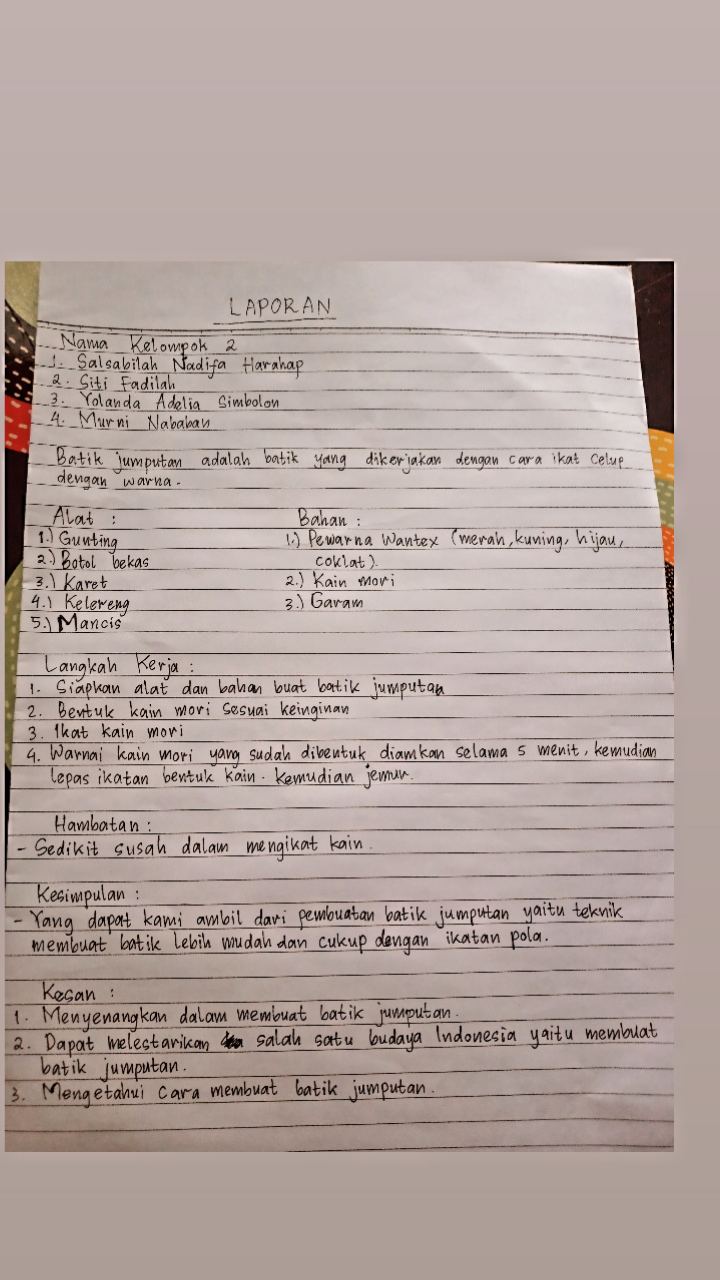 LAPORAN
Nama Kelompok 2
1. Salsabilah Nadifa Harahap
2. Siti Fadilah
3. Yolanda Adelia Simbolon
4. Murni Nababan
Batik jumputan adalah batik yang dikerjakan dengan cara ikat celup
dengan warna.
Alat :
1.) Gunting
2.) Botol bekas
3.) Karet
4.) Kelereng
5.) Mancis
Bahan :
1.) Pewarna Wantex (merah, kuning, hijau,
coklat).
2.) Kain mori
3.) Garam
Langkah Kerja :
1. Siapkan alat dan bahan buat batik jumputan
2. Bentuk kain mori sesuai keinginan
3. Ikat kain mori
4. Warnai kain mori yang sudah dibentuk diamkan selama 5 menit, kemudian
lepas ikatan bentuk kain. kemudian jemur.
Hambatan :
- Sedikit susah dalam mengikat kain.
Kesimpulan :
- Yang dapat kami ambil dari pembuatan batik jumputan yaitu teknik
membuat batik lebih mudah dan cukup dengan ikatan pola.
Kesan :
1. Menyenangkan dalam membuat batik jumputan.
2. Dapat melestarikan salah satu budaya Indonesia yaitu membuat
batik jumputan.
3. Mengetahui cara membuat batik jumputan.